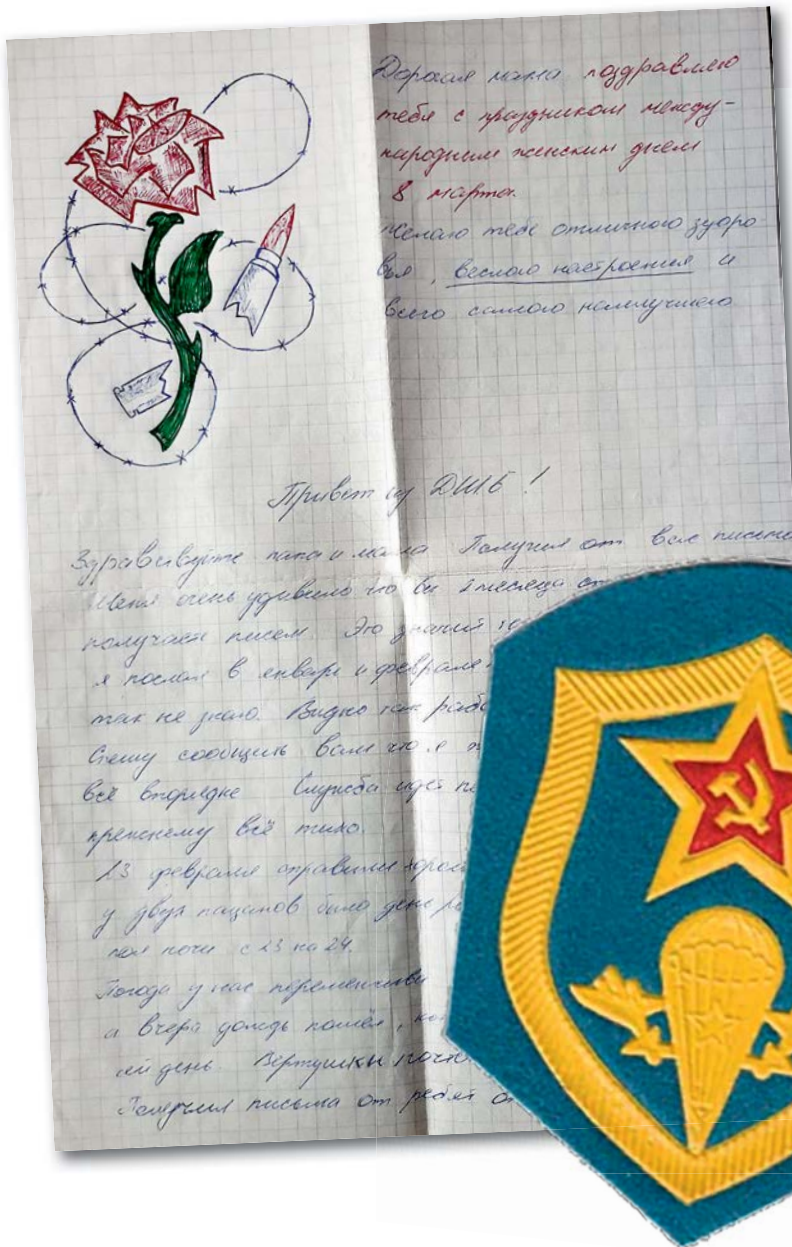 Дорогая мама поздравляю
тебя с праздником между-
народным женским днем
8 марта.
Желаю тебе отличного здоро-
вья, веслого настроения и
всего самого наилучшего
Привет из ДШБ!
Здравствуйте папа и мама Получил от вас письмо
Меня очень удивило что вы 2 месяца
получаете писем. Это значит
я послал в январе и феврале
так не знаю. Видно так
Спешу сообщить вам что я
всё впорядке Служба идёт
прежнему всё тихо.
23 февраля справили
у двух пацанов было день
ночи с 23 на 24.
Погода у нас
а вчера дождь пошёл,
день. Вертушки
Получил письма от ребят